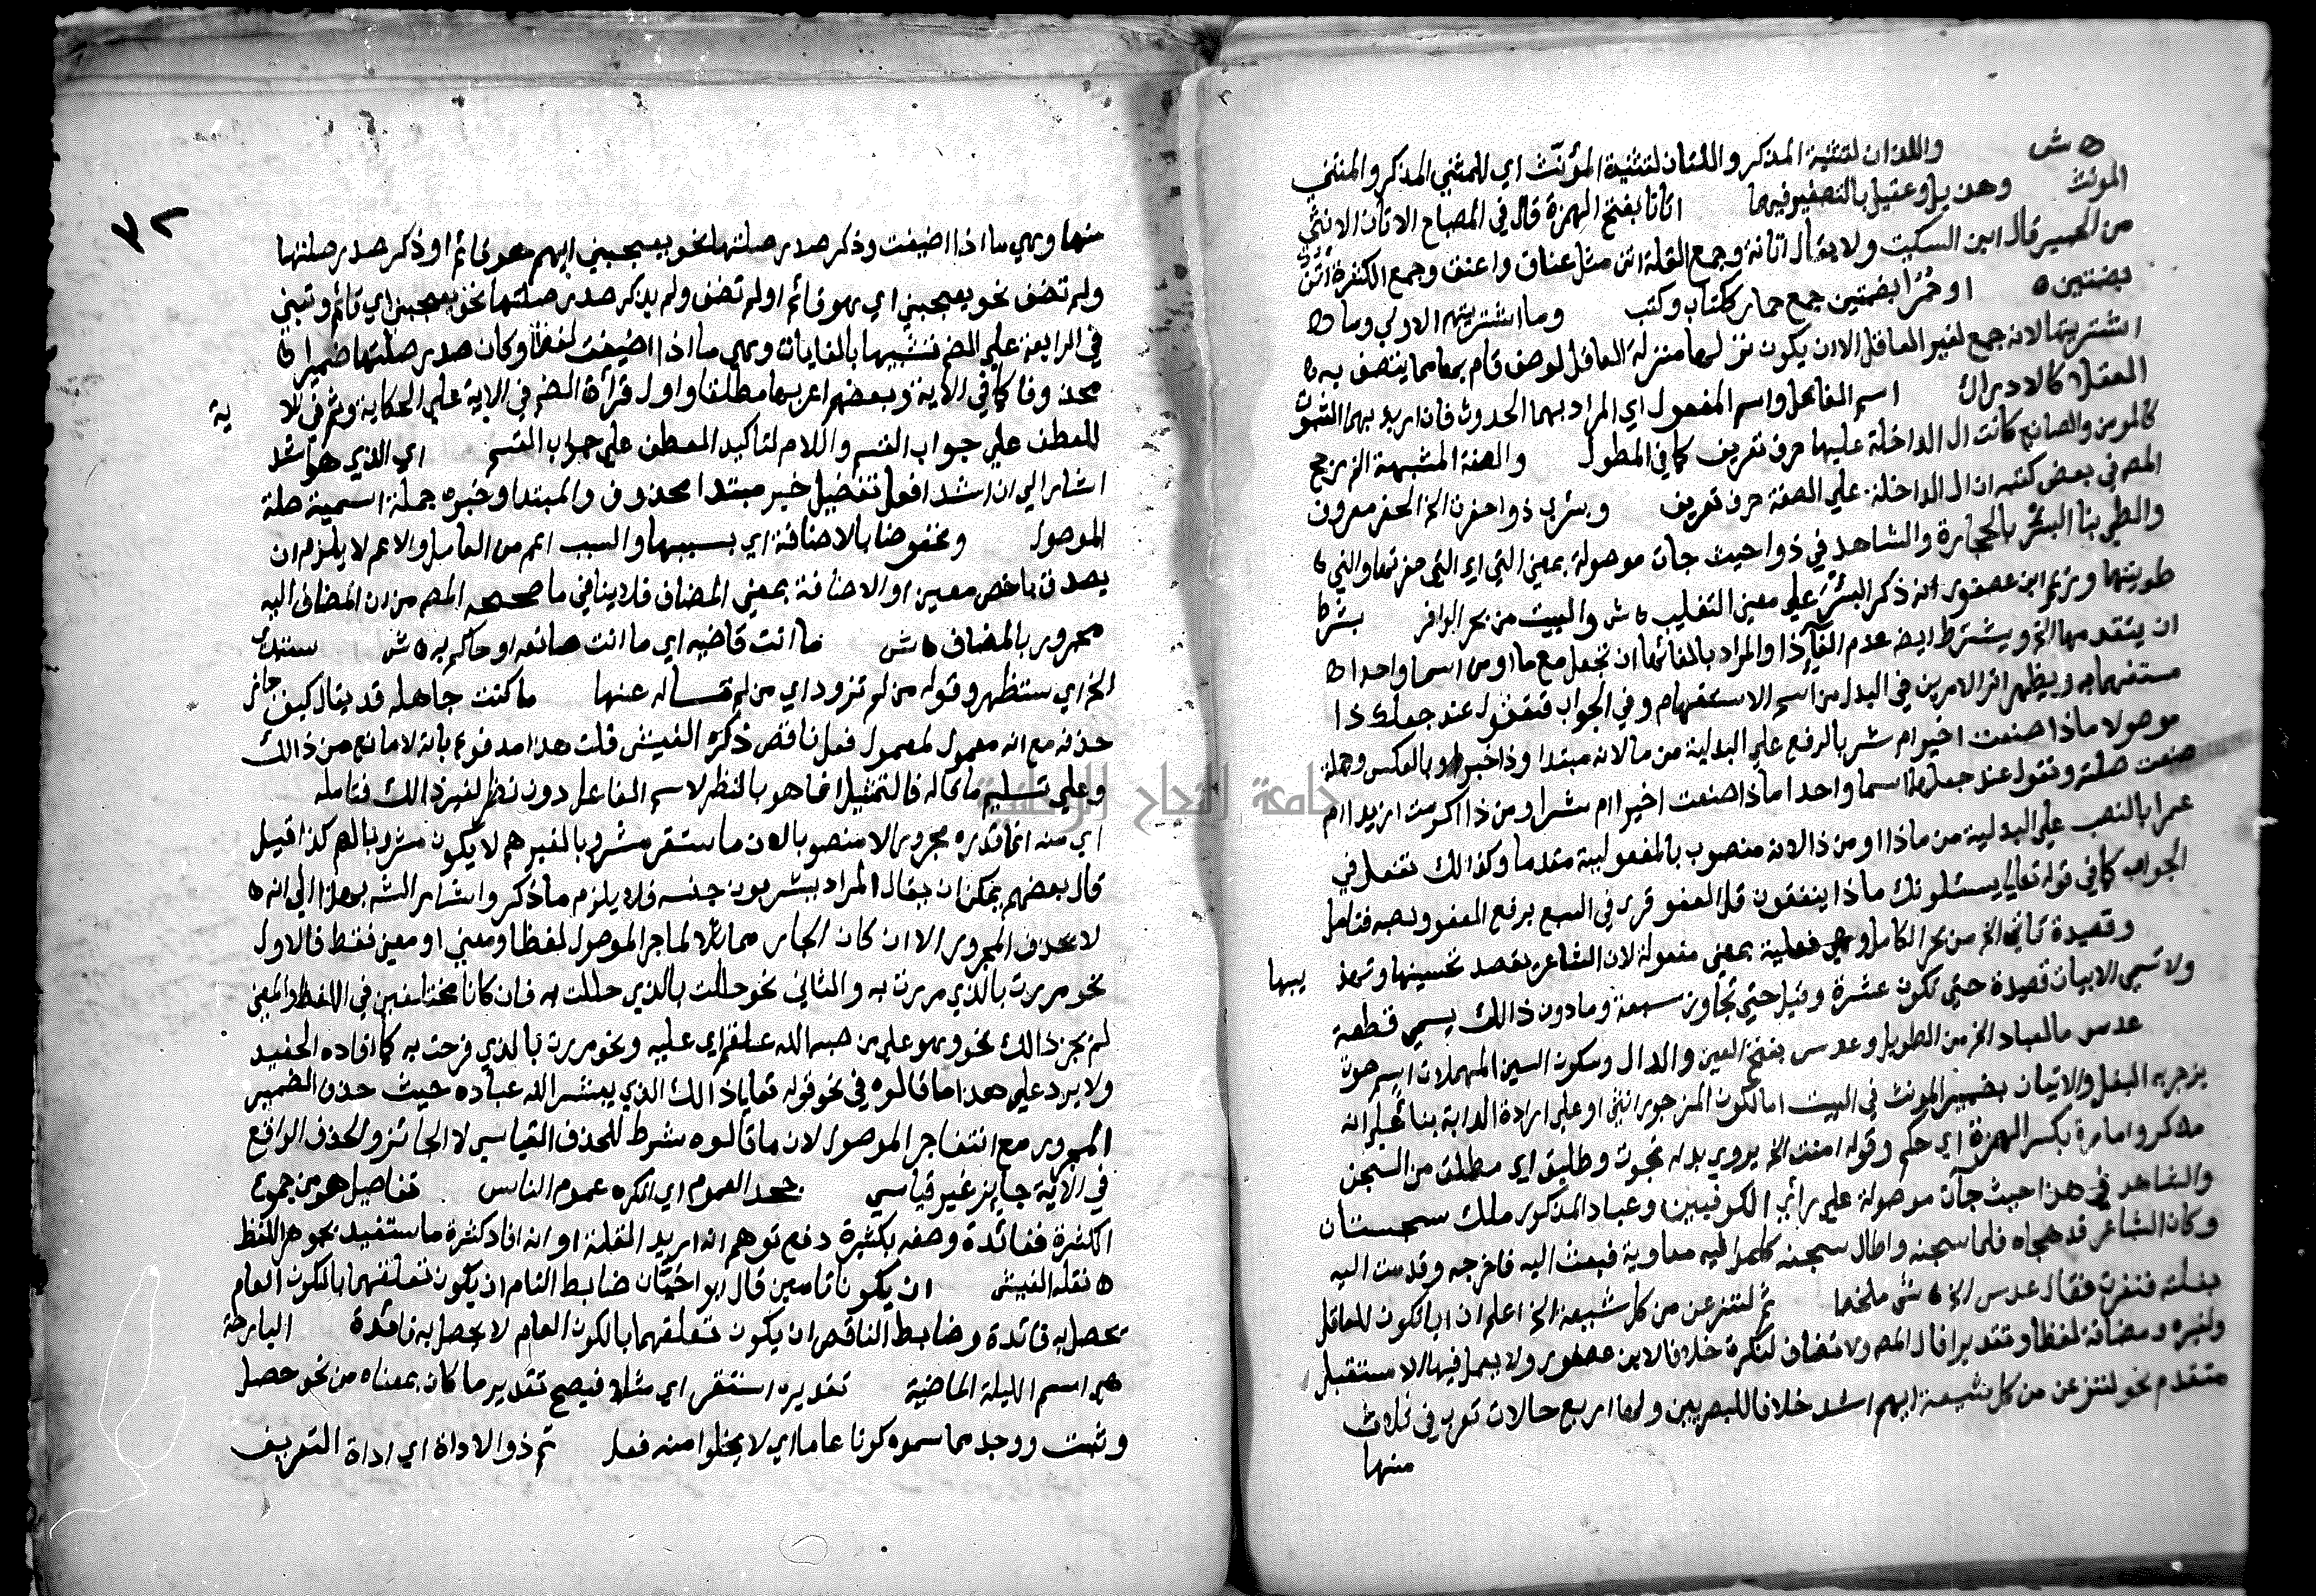 ه ش واللذان لتثنية المذكر واللتان لتثنية المؤنث اي للمثني المذكر والمثني
المونث وهذيل وعقيل بالتصغير فيهما اتانا بفتح الهمزة قال في المصباح الاتان الانثي
من الحمير قال ابن السكيت ولا يقال اتانة وجمع القلة اتن مثل عناق واعنق وجمع الكثرة اتن
بضمتين ه او حمرا بضمتين جمع حمار ككتاب وكتب وما اشتريتهم الاولي وما ه
اشتريتها لانه جمع لغير العاقل الا ان يكون نزلها منزلة العاقل لوصف قام بها مما يتصف به ه
العقلا كالادراك اسم الفاعل واسم المفعول اي المراد بهما الحدوث فان اريد بهما الثبوت
كالمومن والصانع كانت ال الداخلة عليها حرف تعريف كما في المطول والصفة المشبهة الخ رجح
المص في بعض كتبه ان ال الداخلة علي الصفة حرف تعريف وبئري ذو احفرت الخ الحفر معروف
والطي بنا البئر بالحجارة والشاهد في ذو احيث جات موصولة بمعني التي اي التي حفرتها والتي ه
طويتها وزعم ابن عصفور انه ذكر البئر علي معني القليب ه ش والبيت من بحر الوافر بشرط
ان يتقدمها الخ ويشترط ايض عدم الغآء ذا والمراد بالغائها ان تجعل مع ما او من اسما واحدا ه
مستفهما به ويظهر اثر الامرين في البدل من اسم الاستفهام وفي الجواب فتقول عند جعلك ذا
موصولا ماذا صنعت اخير ام شر بالرفع علي البدلية من ما لانه مبتدا وذا خبر او بالعكس وجملة
صنعت صلة وتقول عند جعلهما اسما واحدا ماذا صنعت اخيرا ام شرا ومن ذا اكرمت ازيدا ام
عمرا بالنصب علي البدلية من ماذا او من ذا لانه منصوب بالمفعولية مقدما وكذالك تفعل في
الجواب كما في قوله تعالي يسئلونك ماذا ينفقون قل العفو قرى في السبع برفع العفو ونصبه فتامل
وقصيدة تاتي الخ من بحر الكامل وهي فعلية بمعني مفعولة لان الشاعر يقصد تحسينها وتهذيبها
ولا تسمي الابيات قصيدة حتي تكون عشرة وقيل حتي تجاوز سبعة وما دون ذالك يسمي قطعة
عدس ما لعباد الخ من الطويل وعدس بفتح العين والدال وسكون السين المهملات اسم صوت
يزجر به البغل والاتيان بضمير المونث في البيت اما لكون المزجور انثي او علي ارادة الدابة بنا علي انه
مذكر وامارة بكسر الهمزة اي حكم وقوله امنت الخ يروي بدله نجوت وطليق اي مطلق من السجن
والشاهد في هذا حيث جآت موصولة علي رائي الكوفيين وعباد المذكور ملك سجستان
وكان الشاعر قد هجاه فلما سجنه واطال سجنه كلموا فيه معاوية فبعث اليه فاخرجه وقدمت اليه
بغلة فنفرت فقال عدس الخ ه ش ملخصا ثم لننزعن من كل شيعة الخ اعلم ان ايا تكون للعاقل
ولغيره ومضافة لفظا وتقديرا قال المص ولا تضاف لنكرة خلافا لابن عصفور ولا يعمل فيها الا مستقبل
متقدم نحو لننزعن من كل شيعة ايهم اشد خلافا للبصريين ولها اربع حالات تعرب في ثلاث
منها
٣٢
منها وهي ما اذا اضيفت وذكر صدر صلتها نحو يعجبني ايهم هو قائم او ذكر صدر صلتها
ولم تضف نحو يعجبني اي هو قائم او لم تضف ولم يذكر صدر صلتها نحو يعجبني اي قائم وتبني
في الرابعة علي الضم تشبيها بالغايات وهي ما اذا اضيفت لفظا وكان صدر صلتها ضميرا ه
محذوفا كما في الاية وبعضهم اعربها مطلقا واول قراة الضم في الاية علي الحكاية وثم في الاية
للعطف علي جواب القسم واللام لتاكيد المعطف علي جواب القسم اي الذي هو اشد
اشار الي ان اشد افعل تفضيل خبر مبتدا محذوف والمبتدا وخبره جملة اسمية صلة
الموصول ومخفوضا بالاضافة اي بسببها والسبب اعم من العامل والاعم لا يلزم ان
يصدق باخص معين او الاضافة بمعني المضاف فلا ينافي ما صححه المص من ان المضاف اليه
مجرور بالمضاف ه ش ما انت قاضيه اي ما انت صانعه او حاكم به ه ش ستبدي لك
الخ اي ستظهر وقوله من لم تزود اي من لم تساله عنها ما كنت جاهلا قد يقال كيف جاز
حذفه مع انه معمول لمعمول فعل ناقص ذكره الفيشى قلت هذا مدفوع بانه لا مانع من ذالك
وعلي تسليم ما قاله فالتمثيل انما هو بالنظر لاسم الفاعل دون نظر لغير ذالك فتامله
اي منه انما قدره مجرورا لا منصوبا لان ما استقر مشروبا لغيرهم لا يكون مشروبا لهم كذا قيل
قال بعضهم يمكن ان يقال المراد بيشربون جنسه فلا يلزم ما ذكر واشار الش بهذا الي انه ه
لا يحذف المجرور الا ان كان الجار مماثلا لما جر الموصول لفظا ومعني او معني فقط فالاول
نحو مررت بالذي مررت به والثاني نحو حللت بالذي حللت به فان كانا مختلفين في اللفظ والمعني
لم يجز ذالك نحو وهو علي من صبه الله علقم اي عليه ونحو مررت بالذي فرحت به كما افاده الحفيد
ولا يرد علي هذا ما قالوه في نحو قوله تعالي ذالك الذي يبشر الله عباده حيث حذف الضمير
المجرور مع انتفا جر الموصول لان ما قالوه شرط للحذف القياسي لا الجائز والحذف الواقع
في الاية جايز غير قياسي جحد العموم اي انكره عموم الناس تفاصيل هو من جموع
الكثرة ففائدة وصفه بكثيرة دفع توهم انه اريد القلة او انه افاد كثرة ما ستفيد بجوهر اللفظ
ه نقله الفيشى ان يكونا تامين قال ابو احيان ضابط التام ان يكون تعلقهما بالكون العام
تحصل به فائدة وضابط الناقص ان يكون تعلقهما بالكون العام لا يحصل به فائدة البارحة
هي اسم الليلة الماضية تقديره استقر اي مثلا فيصح تقدير ما كان بمعناه من نحو حصل
وثبت ووجد مما سموه كونا عاما اي لا يخلوا منه فعل ثم ذو الاداة اي اداة التعريف
جامعة النجاح الوطنية